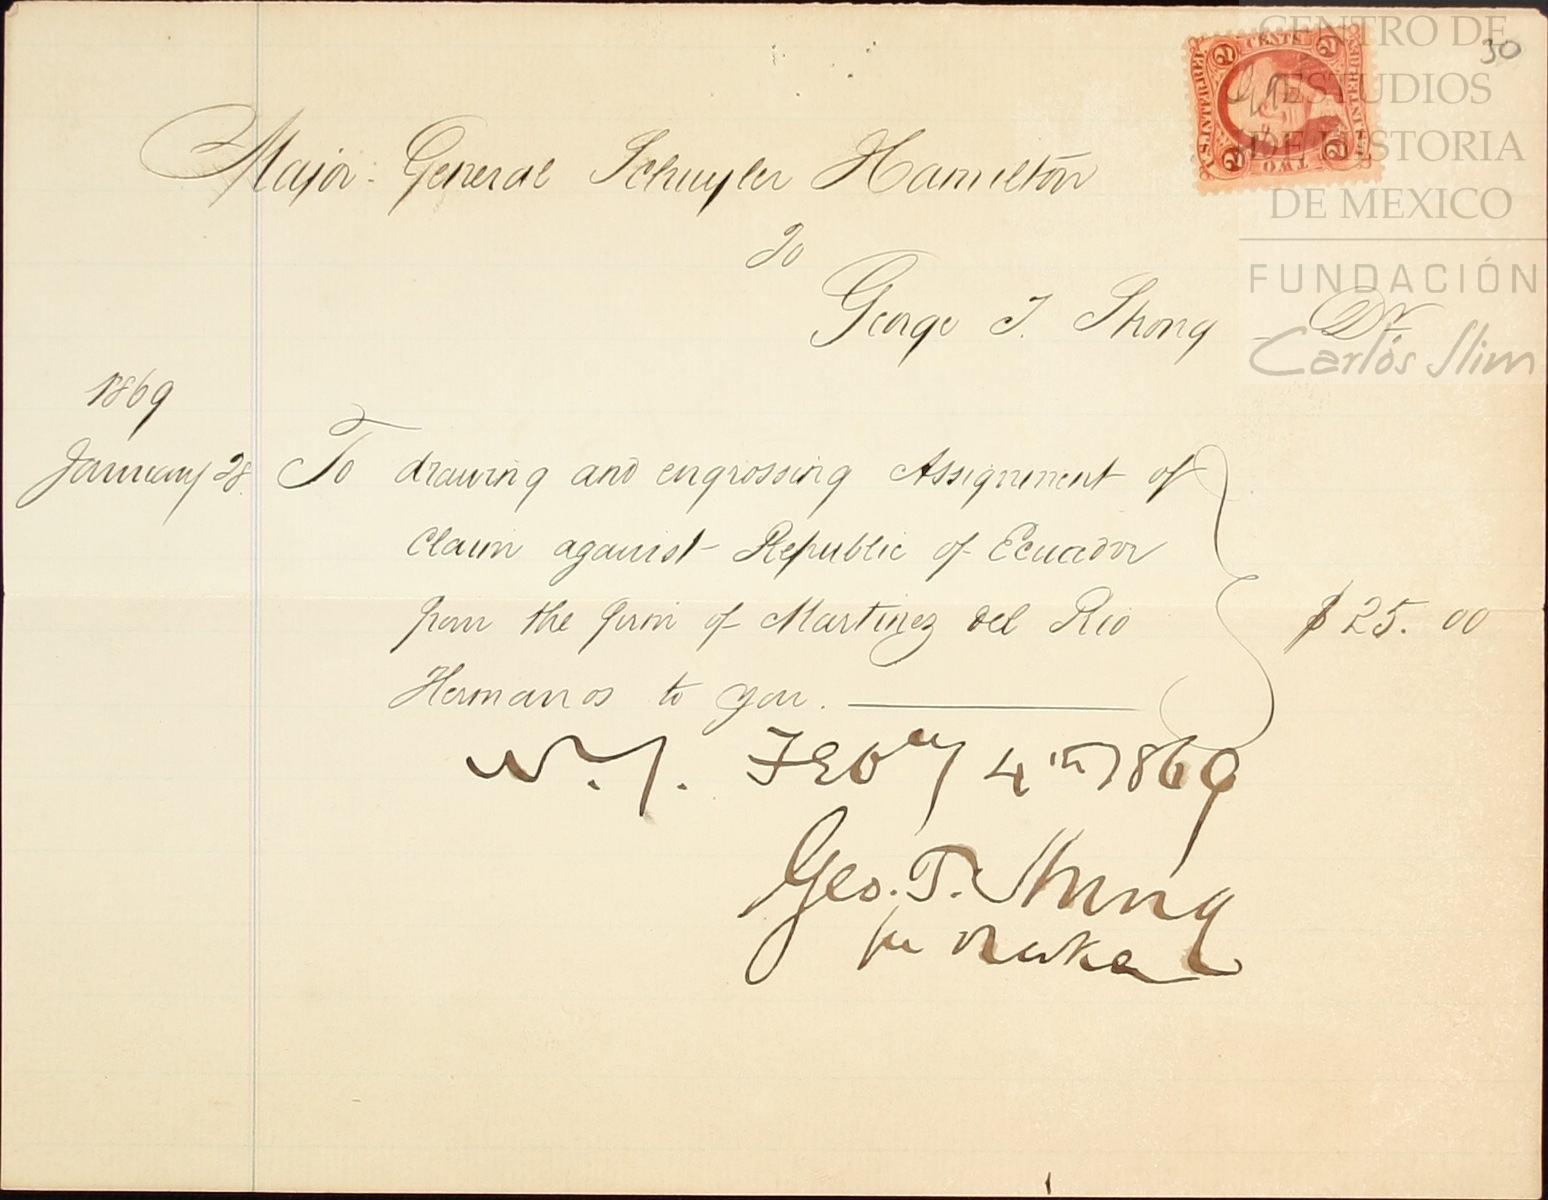 30
CENTRO DE
ESTUDIOS
DE HISTORIA
DE MEXICO
FUNDACIÓN
Carlos Slim
U.S. INTER. REV.
2 CENTS 2
2 TWO 2
Major-General Schuyler Hamilton
To
George T. Strong Dr.
1869
January 28. To drawing and engrossing Assignment of
claim against Republic of Ecuador
from the firm of Martinez del Rio
Hermanos to you. $25.00
N.Y. Feby 4th 1869
Geo. T. Strong